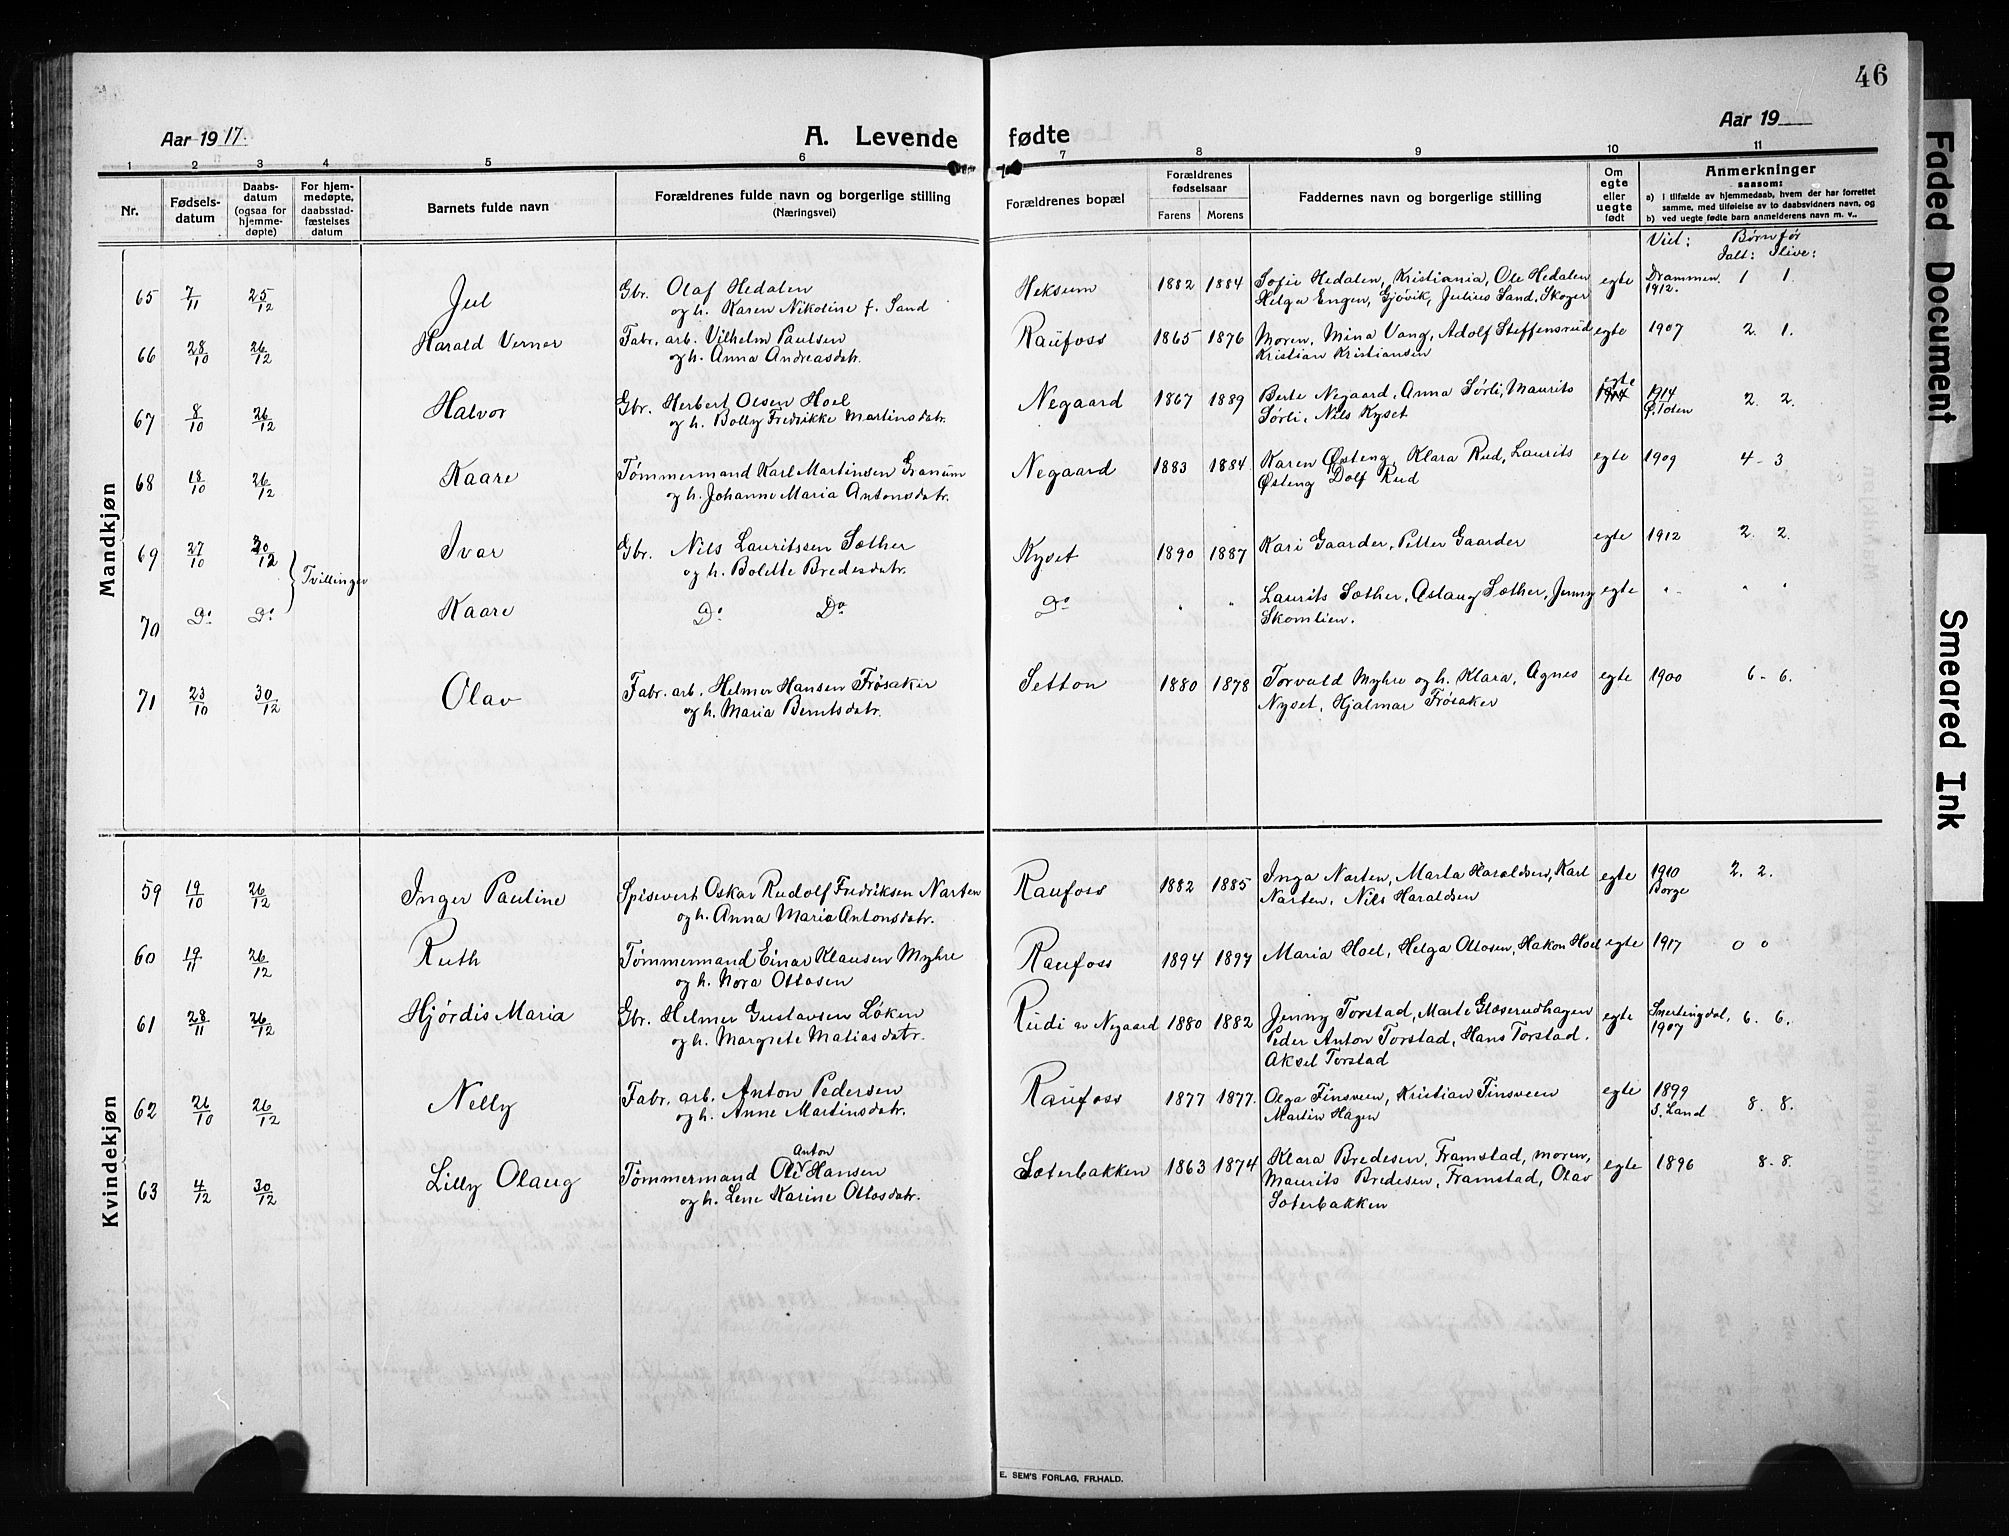 46
Aar 1917.
A. Levende fødte
Aar 19
1 2 3 4 5 6 7 8 9 10 11
Nr.
Fødsels-
datum
Daabs-
datum
(ogsaa for
hjemme-
døpte)
For hjem-
medøpte,
daabsstad-
fæstelses
datum
Barnets fulde navn
Forældrenes fulde navn og borgerlige stilling
(Næringsvei)
Forældrenes bopæl
Forældrenes
fødselsaar
Farens Morens
Faddernes navn og borgerlige stilling
Om
egte
eller
uegte
født
Anmerkninger
saasom:
a) i tilfælde av hjemmedaab, hvem der har forrettet
samme, med tilføielse av to daabsvidners navn, og
b) ved uegte fødte barn anmelderens navn m. v..
Viet: Børn før
Ialt: Ilive:
Mandkjøn
65 7/11 25/12 Jul Gbr. Olaf Hedalen Heksum 1882 1884 Sofie Hedalen, Kristiania, Ole Hedalen egte Drammen 1 1.
og h. Karen Nikoline f. Sand Helga Engen, Gjøvik, Julius Sand, Skoger 1912.
66 28/10 26/12 Harald Verner Fabr. arb. Vilhelm Paulsen Raufoss 1865 1876 Moren, Mina Vang, Adolf Steffensrud egte 1907 2. 1.
og h. Anna Andreasdatr. Kristian Kristiansen
67 8/10 26/12 Halvor Gbr. Herbert Olsen Hoel Negaard 1867 1889 Berte Negaard, Anna Sørli, Maurits egte 1914 2. 2.
og h. Bolly Fredrikke Martinsdatr. Sørli, Nils Kyset Ø. Toten
68 18/10 26/12 Kaare Tømmermand Karl Martinsen Granum Negaard 1883 1884 Karen Østeng, Klara Rud, Laurits egte 1909 4 - 3
og h. Johanne Maria Antonsdatr. Østeng Dolf Rud
69 27/10 30/12 Tvillinger Ivar Gbr. Nils Lauritssen Sæther Kyset 1890 1887 Kari Gaarder, Petter Gaarder egte 1912 2. 2.
og h. Bolette Bredesdatr.
70 Do Do Kaare Do Do Do " " Laurits Sæther, Aslaug Sæther, Jenny egte " " "
Skomlien.
71 23/10 30/12 Olav Fabr. arb. Helmer Hansen Frøsaker Setton 1880 1878 Torvald Myhre og h. Klara, Agnes egte 1900 6 - 6.
og h. Maria Berntsdatr. Nyset, Hjalmar Frøsaker
Kvindekjøn
59 19/10 26/12 Inger Pauline Spisevert Oskar Rudolf Fredriksen Narten Raufoss 1882 1885 Inga Narten, Marta Haraldsen, Karl egte 1910 2. 2.
og h. Anna Maria Antonsdatr. Narten, Nils Haraldsen Borge
60 19/11 26/12 Ruth Tømmermand Einar Klausen Myhre Raufoss 1894 1897 Maria Hoel, Helga Ottosen, Hakon Hoel egte 1917 0 0
og h. Nora Ottosen
61 28/11 26/12 Hjørdis Maria Gbr. Helmer Gustavsen Løken Rudi Negaard 1880 1882 Jenny Torstad, Marte Glæserudhagen egte Snertingdal, 6. 6.
og h. Margrete Matiasdatr. Peder Anton Torstad, Hans Torstad. 1907
Aksel Torstad
62 26/10 26/12 Nelly Fabr. arb. Anton Pedersen Raufoss 1877 1877. Olga Finsveen, Kristian Finsveen egte 1899 8. 8.
og h. Anne Martinsdatr. Martin Hagen S. Land
63 4/12 30/12 Lilly Olaug Tømmermand Ole Anton Hansen Sæterbakken 1863 1874 Klara Bredesen, Framstad, moren, egte 1896 8 - 8.
og h. Lene Karine Ottosdatr. Maurits Bredesen, Framstad, Olav
Sæterbakken
E. SEM'S FORLAG, FR.HALD.
Faded Document
Smeared Ink